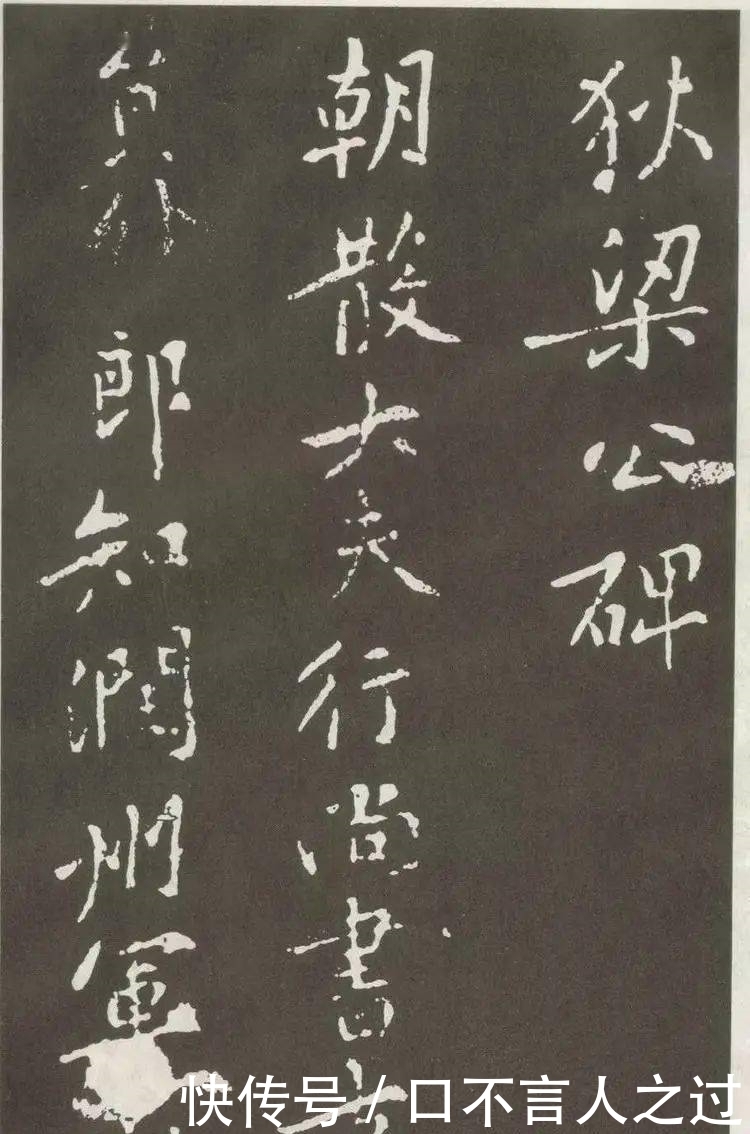 狄梁公碑
朝散大夫行尚書
郎知潤州軍
快传号 / 口不言人之过